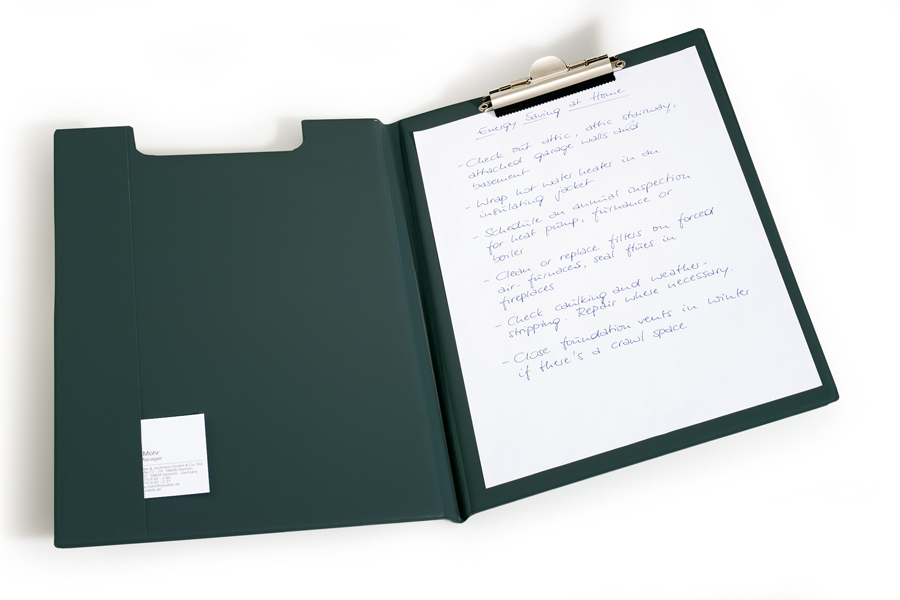 Energy Saving at Home
- Check out attic, attic stairway,
attached garage walls and
basement
- Wrap hot water heater in an
insulating jacket
- Schedule an annual inspection
for heat pump, furnance or
boiler
- Clean or replace filters on forced
air-furnaces, seal flues in
fireplaces
- Check caulking and weather-
stripping. Repair where necessary.
- Close foundation vents in winter
if there's a crawl space
Mohr
Manager